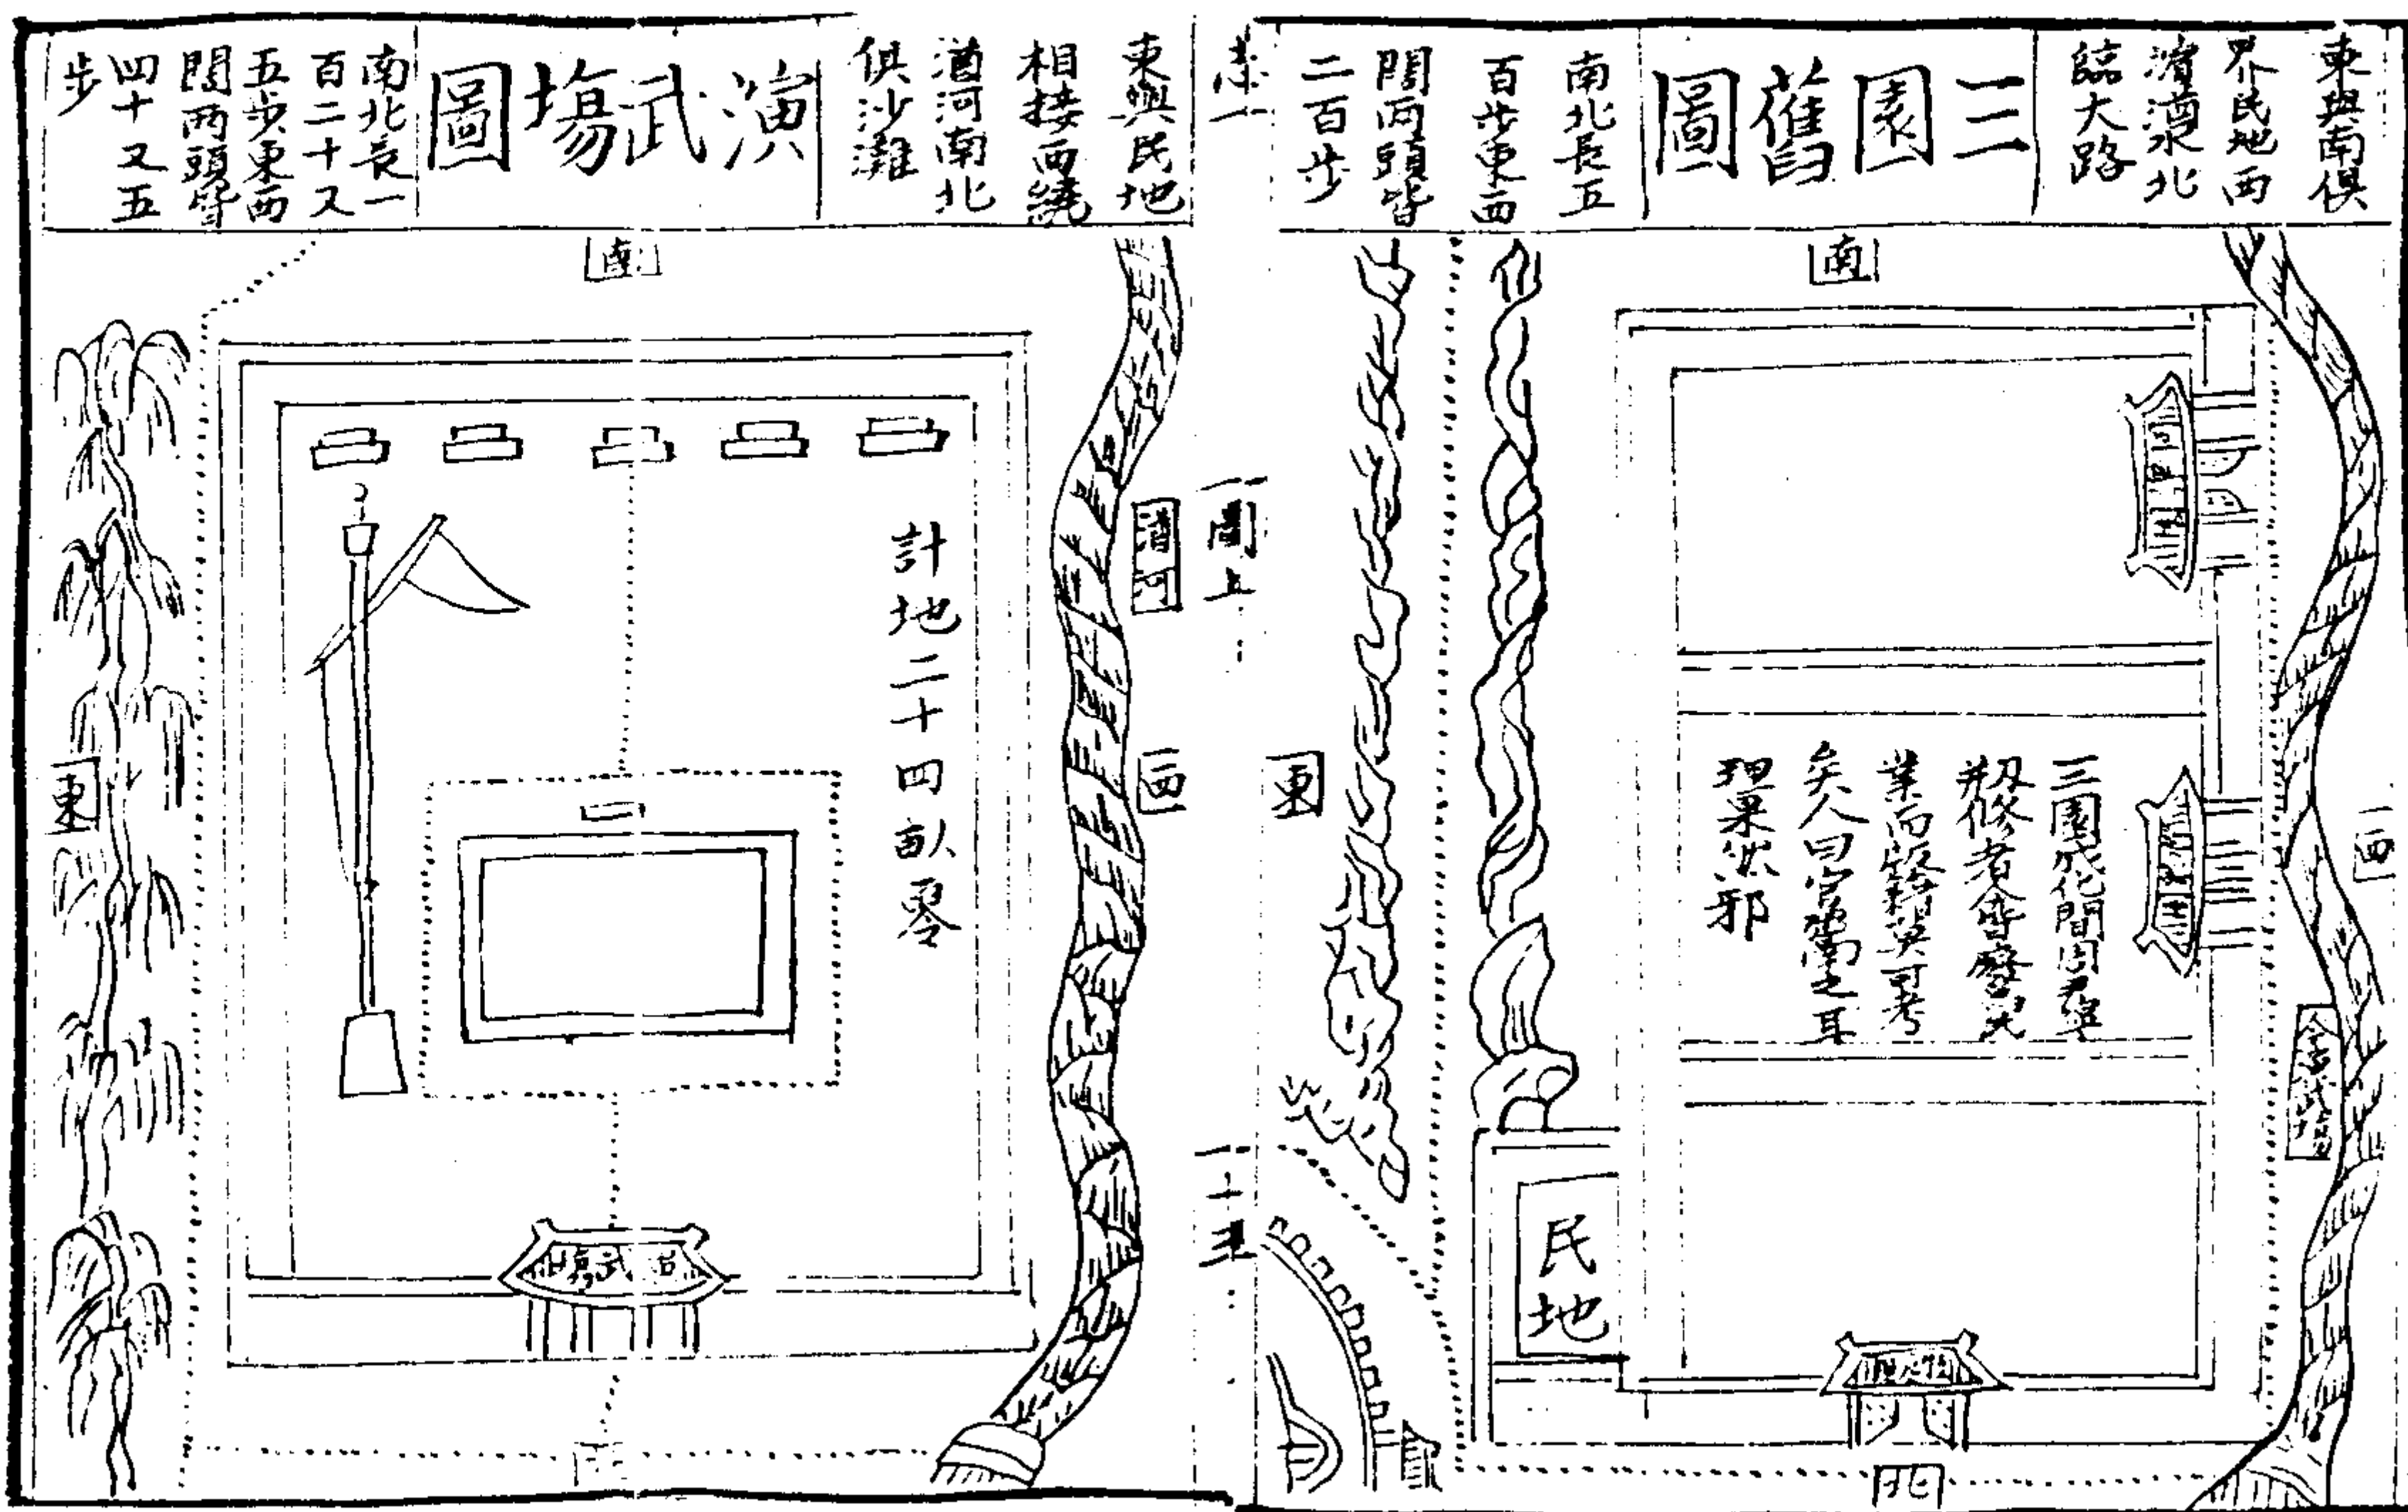 東與南俱
界民地西
濱湭水北
臨大路
三園舊圖
南北長五
百步東西
闊兩頭皆
二百步
南
三園成化間因舊
剏修者今皆廢
業而版籍莫可考
矣人曰官鬻之耳
理果然邪
西
東
民地
北
圖上
東與民地
相接西繞
湭河南北
俱沙灘
演武場圖
南北長一
百二十又
五步東西
闊兩頭皆
四十又五
步
南
湭河
計地二十四畝零
西
東